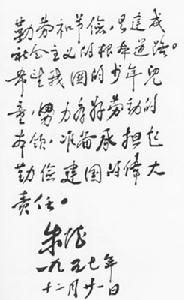 勤劳和节俭,是建成
社会主义的根本道路。
希望我国的少年儿
童,努力养好劳动的
本领,准备承担起
勤俭建国的伟大
责任。
朱德
一九五七年
十二月廿一日